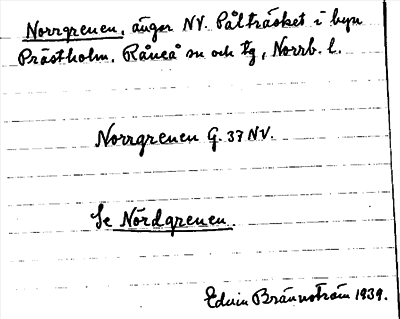 Norrgrenen, ängar NV. Pålträsket i byn
Prästholm. Råneå sn och tg, Norrb. l.
Norrgrenen G. 37 NV.
Se Nordgrenen.
Edvin Brännström 1939.